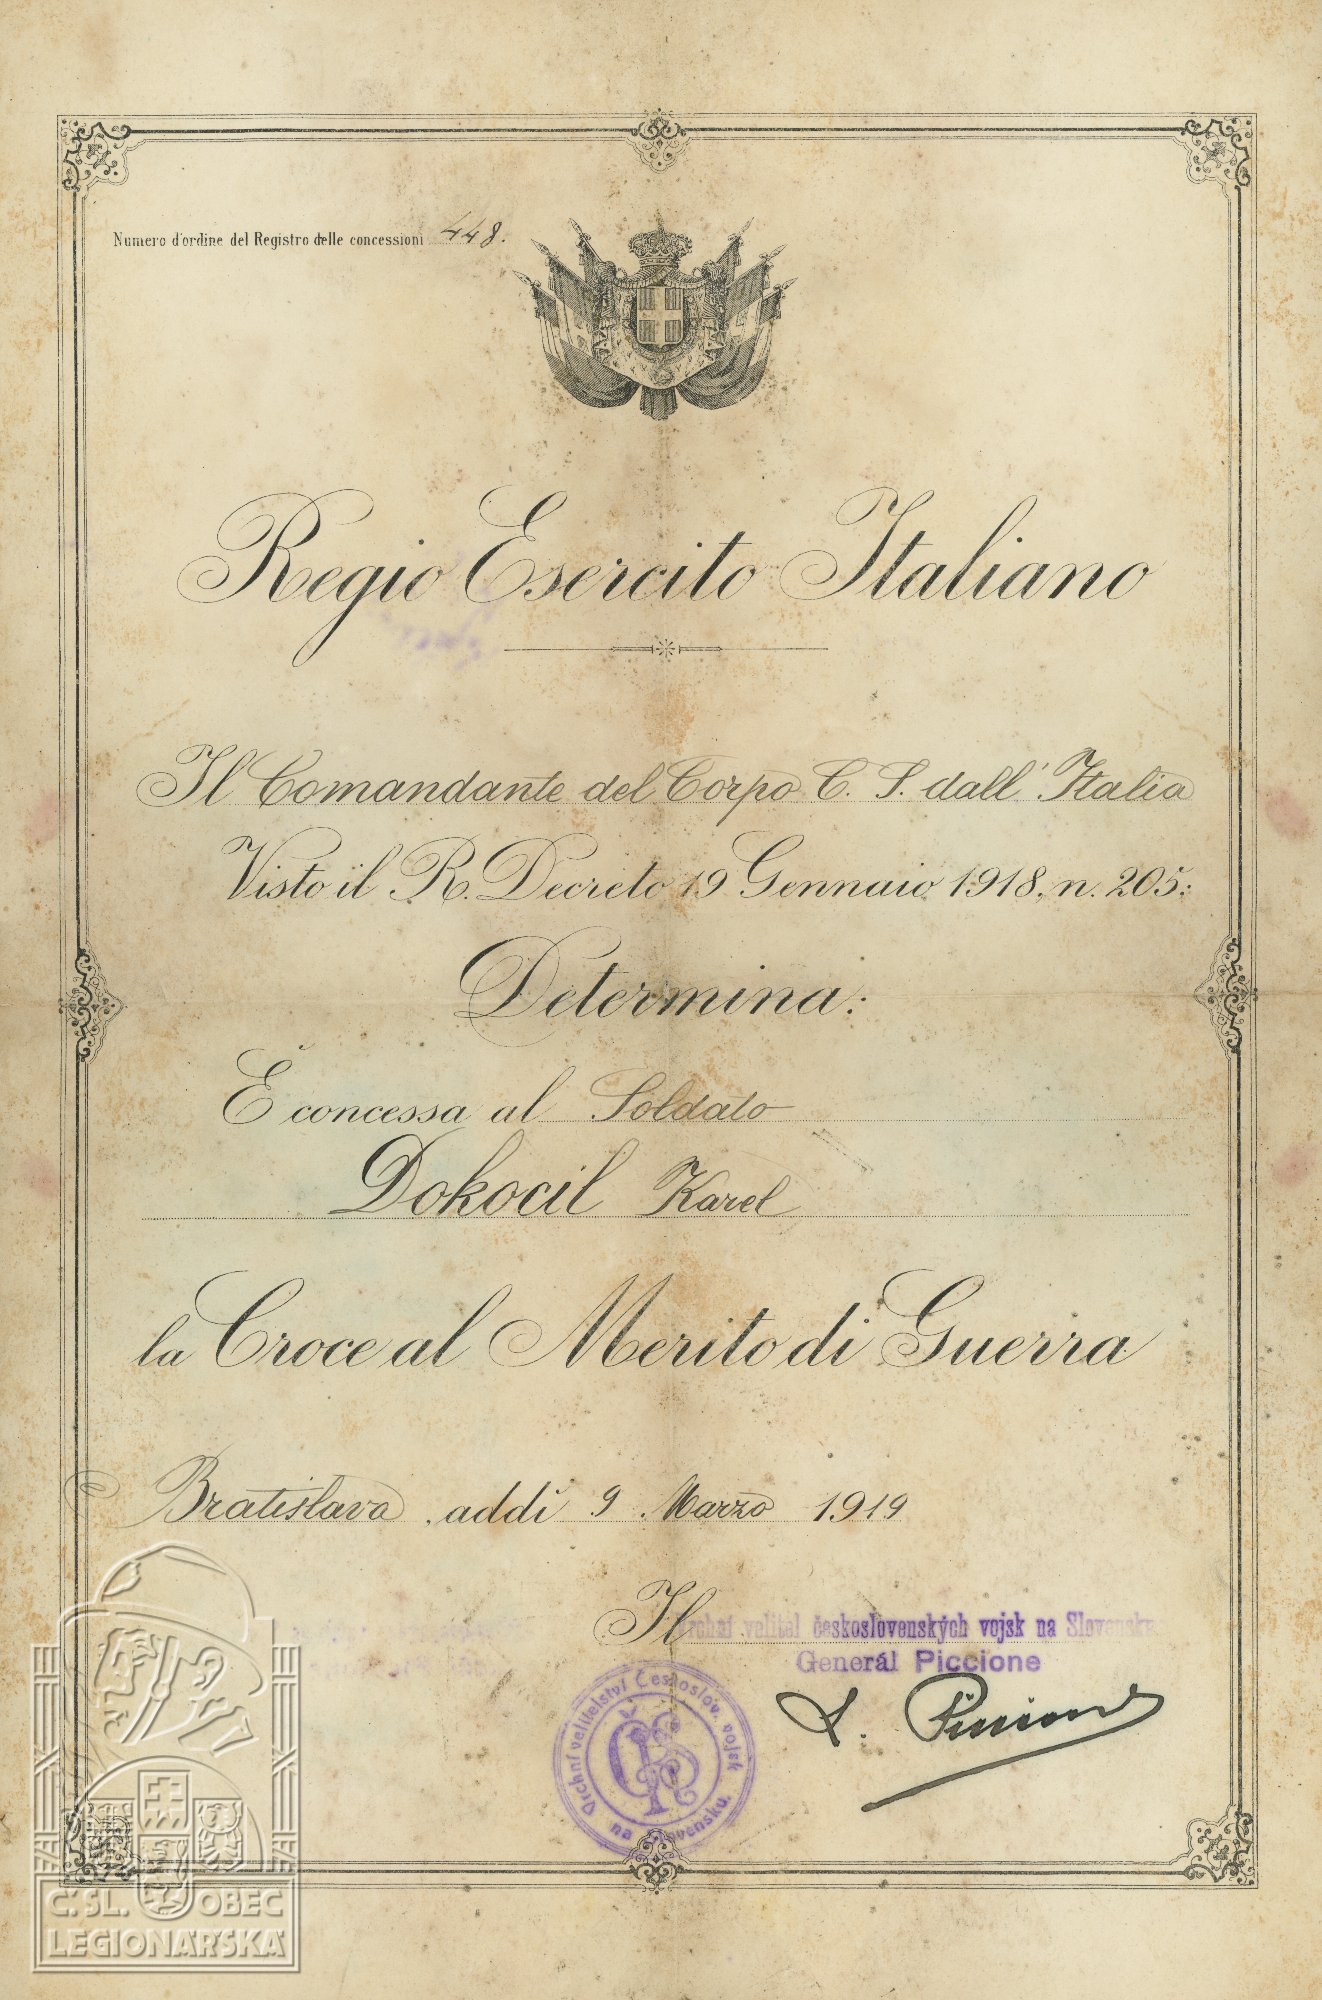 Numero d'ordine del Registro delle concessioni 448.
Regio Esercito Italiano
Il Comandante del Corpo C. S. dall' Italia
Visto il R. Decreto 19 Gennaio 1918, n. 205:
Determina:
É concessa al Soldato
Dokocil Karel
la Croce al Merito di Guerra
Bratislava, addí 9 Marzo 1919
Il
Vrchní velitel československých vojsk na Slovensku
Generál Piccione
L. Piccione
Vrchní velitelství Českoslov. vojsk
na Slovensku.
ČS
Č.SL. OBEC
LEGIONÁŘSKÁ